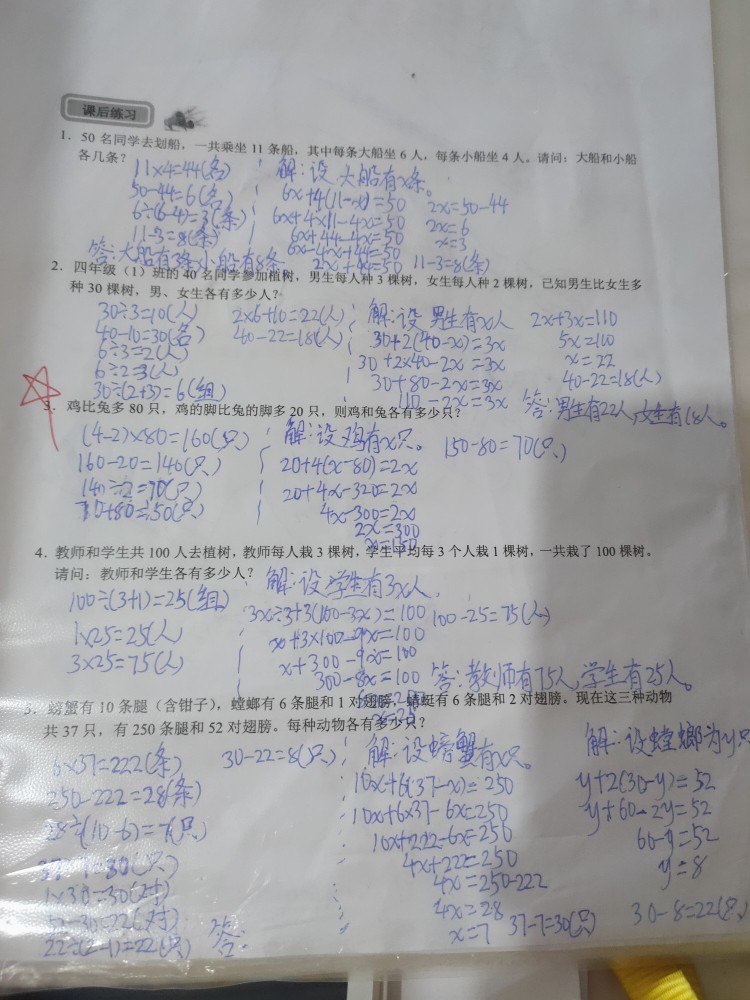 课后练习
1. 50 名同学去划船，一共乘坐 11 条船，其中每条大船坐 6 人，每条小船坐 4 人。请问：大船和小船
各几条？
11×4=44(名)
50-44=6(名)
6÷(6-4)=3(条)
11-3=8(条)
答:大船有3条,小船有8条
解:设大船有x条。
6x+4(11-x)=50
6x+4×11-4x=50
6x+44-4x=50
6x-4x+44=50
2x+44=50
2x=50-44
2x=6
x=3
11-3=8(条)
2. 四年级（1）班的 40 名同学参加植树，男生每人种 3 棵树，女生每人种 2 棵树，已知男生比女生多
种 30 棵树，男、女生各有多少人？
30÷3=10(人)
40-10=30(名)
6÷3=2(人)
6÷2=3(人)
30÷(2+3)=6(组)
2×6+10=22(人)
40-22=18(人)
解:设男生有x人
30+2(40-x)=3x
30+2×40-2x=3x
30+80-2x=3x
110-2x=3x
2x+3x=110
5x=110
x=22
40-22=18(人)
答:男生有22人,女生有18人。
3. 鸡比兔多 80 只，鸡的脚比兔的脚多 20 只，则鸡和兔各有多少只？
(4-2)×80=160(只)
160-20=140(只)
140÷2=70(只)
70+80=150(只)
解:设鸡有x只。
20+4(x-80)=2x
20+4x-320=2x
4x-300=2x
2x=300
x=150
150-80=70(只)
4. 教师和学生共 100 人去植树，教师每人栽 3 棵树，学生平均每 3 个人栽 1 棵树，一共栽了 100 棵树。
请问：教师和学生各有多少人？
100÷(3+1)=25(组)
1×25=25(人)
3×25=75(人)
解:设学生有3x人,
3x÷3+3(100-3x)=100
x+3×100-9x=100
x+300-9x=100
300-8x=100
x=25
100-25=75(人)
答:教师有75人,学生有25人。
5. 螃蟹有 10 条腿（含钳子），螳螂有 6 条腿和 1 对翅膀，蜻蜓有 6 条腿和 2 对翅膀。现在这三种动物
共 37 只，有 250 条腿和 52 对翅膀。每种动物各有多少只？
6×37=222(条)
250-222=28(条)
28÷(10-6)=7(只)
37-7=30(只)
1×30=30(对)
52-30=22(对)
22÷(2-1)=22(只)
30-22=8(只)
答:
解:设螃蟹有x只。
10x+6(37-x)=250
10x+6×37-6x=250
10x+222-6x=250
4x+222=250
4x=250-222
4x=28
x=7
37-7=30(只)
解:设螳螂为y只
y+2(30-y)=52
y+60-2y=52
60-y=52
y=8
30-8=22(只)